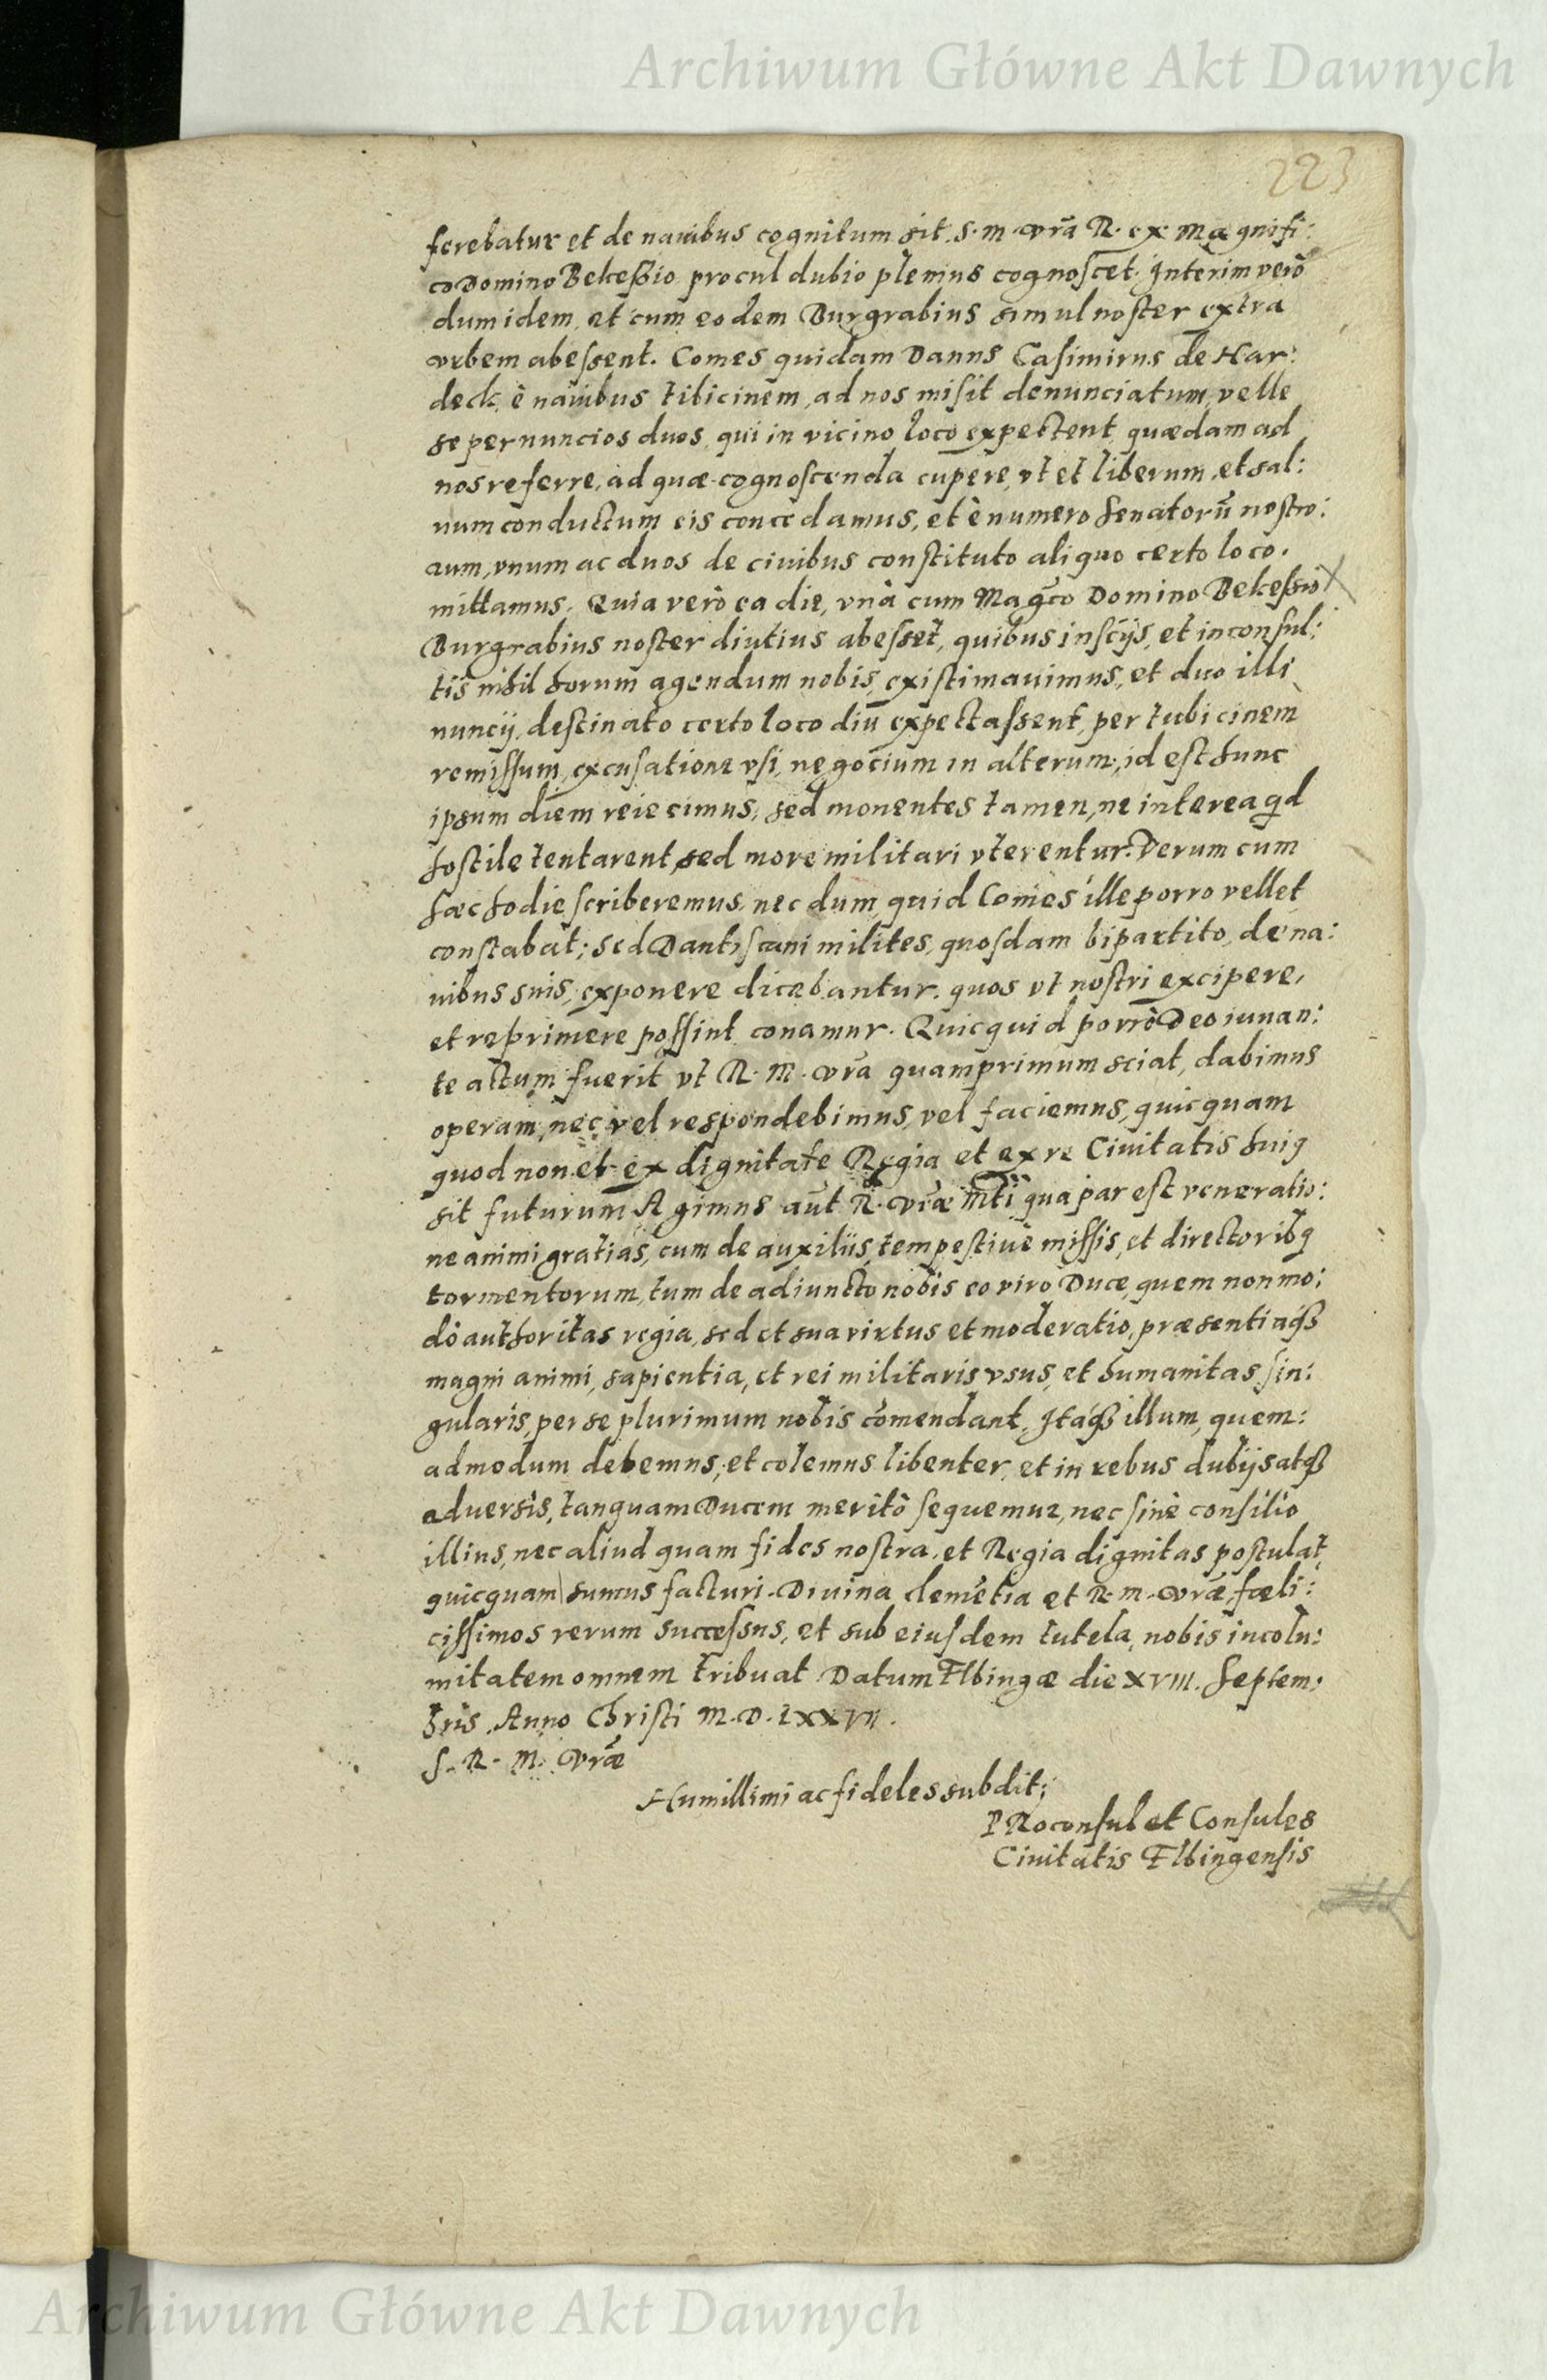 Archiwum Główne Akt Dawnych
223
ferebatur et de nauibus cognitum sit. S. M. Vrã R. ex Magnifi:
co Domino Bekeßio procul dubio plenius cognoscet. Interim verò
dum idem, et cum eodem Burgrabius simul noster extra
vrbem abessent. Comes quidam Danus Casimirus de Har:
deck, è nauibus tibicinem, ad nos misit denunciatum, velle
se per nuncios duos, qui in vicino loco expectent, quædam ad
nos referre, ad quæ cognoscenda cupere, vt et liberum, et sal:
uum conductum eis concedamus, et è numero Senatorũ nostro:
rum, vnum ac duos de ciuibus constituto aliquo certo loco.
mittamus. Quia verò ea die, vnà cum Mag̃co Domino Bekeßio
Burgrabius noster diutius abesset, quibus insciis, et inconsul:
tis nihil horum agendum nobis existimauimus, et duo illi
nuncij, destinato certo loco diu expectassent, per tubicinem
remissum, excusatione vsi, negocium in alterum, id est hunc
ipsum diem reiecimus, sed monentes tamen, ne interea qd
hostile tentarent, sed more militari vterentur. Verum cum
hæc hodie scriberemus, nec dum, quid Comes ille porro vellet
constabat; Sed Dantiscani milites, quosdam bipartito, de na:
uibus suis, exponere dicebantur. quos vt nostri excipere,
et reprimere possint conamur. Quicquid porrò Deo iuuan:
te actum fuerit vt R. M. Vrã quamprimum sciat, dabimus
operam, nec vel respondebimus, vel faciemus, quicquam
quod non et ex dignitate Regia et ex re Ciuitatis huiꝰ
sit futurum. Agimus aũt R. Vræ̃ Mti qua par est veneratio:
ne animi gratias, cum de auxiliis, tempestiuè missis, et directoribꝰ
tormentorum, tum de adiuncto nobis eo viro Duce, quem non mo:
dò authoritas regia, sed et sua virtus et moderatio, præsentiaqȝ
magni animi, sapientia, et rei militaris vsus, et humanitas sin:
gularis, per se plurimum nobis com̃endant. Itaqȝ illum, quem:
admodum debemus, et colemus libenter, et in rebus dubijs atqȝ
aduersis, tanquam Ducem meritò sequemur, nec sine consilio
illius, nec aliud quam fides nostra, et Regia dignitas postulat
quicquam sumus facturi. Diuina clemẽtia et R. M. Vræ̃, fœli:
cissimos rerum successus, et sub eiusdem tutela, nobis incolu:
mitatem omnem tribuat Datum Elbingæ die XVIII. Septem:
bris. Anno Christi M. D. LXXVII.
S. R. M. Vræ̃
Humillimi ac fideles subditi
PRoconsul et Consules
Ciuitatis Elbingensis
Archiwum Główne Akt Dawnych